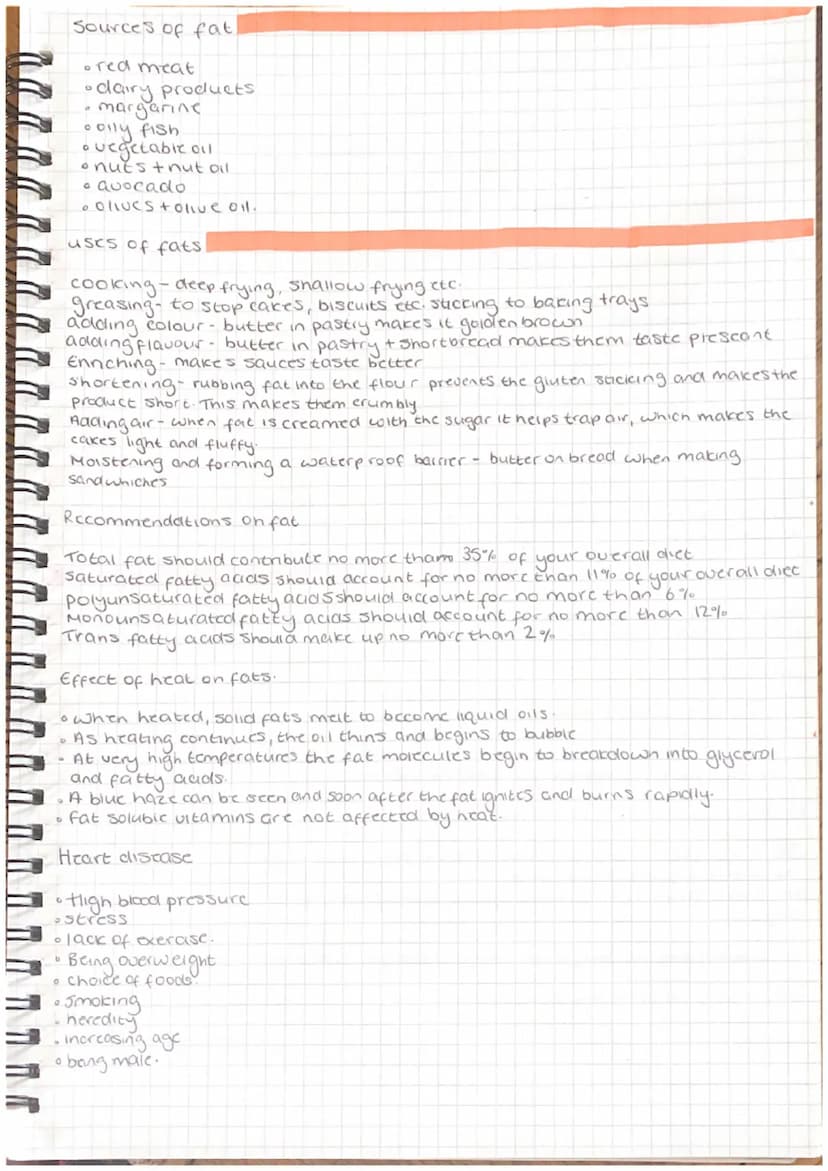 Sources of fat
• red meat
• dairy products
• margarine
• oily fish
• vegetable oil
• nuts + nut oil
• avocado
• olives + olive oil.
uses of fats
cooking - deep frying, shallow frying etc.
greasing - to stop cakes, biscuits etc. sticking to baking trays
adding colour - butter in pastry makes it golden brown
adding flavour - butter in pastry + shortbread makes them taste prescant
Enriching - makes sauces taste better
shortening - rubbing fat into the flour prevents the gluten sticking and makes the
product short. This makes them crumbly
Adding air - when fat is creamed with the sugar it helps trap air, which makes the
cakes light and fluffy.
Moistening and forming a waterproof barrier - butter on bread when making
sandwhiches
Reccommendations on fat
Total fat should contribute no more than 35% of your overall diet
saturated fatty acids should account for no more than 11% of your overall diet
polyunsaturated fatty acids should account for no more than 6%
Monounsaturated fatty acids should account for no more than 12%
Trans fatty acids should make up no more than 2%
Effect of heat on fats.
• When heated, solid fats melt to become liquid oils.
• As heating continues, the oil thins and begins to bubble
• At very high temperatures the fat molecules begin to breakdown into glycerol
and fatty acids.
• A blue haze can be seen and soon after the fat ignites and burns rapidly.
• fat soluble vitamins are not affected by heat.
Heart disease
• High blood pressure
• stress
• lack of exercise.
• Being overweight
• choice of foods.
• smoking
• heredity
• increasing age
• being male.